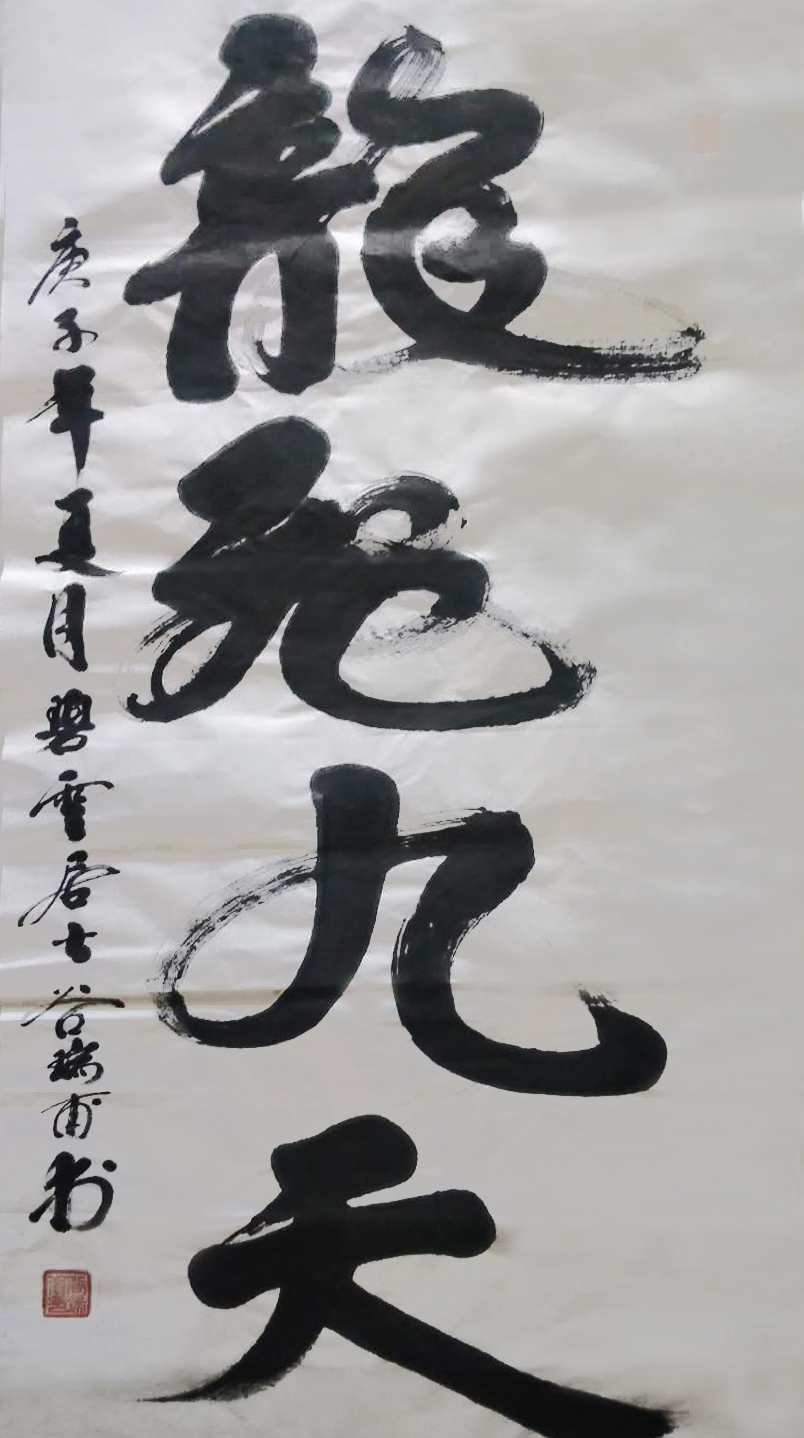 龍飛九天
庚子年夏月碧雲居士谷瑞甫書